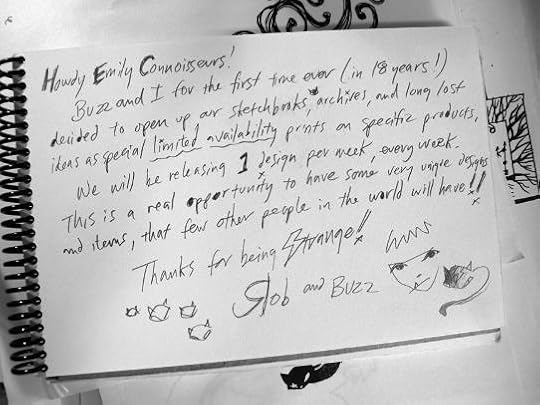 Howdy Emily Connoisseurs!
Buzz and I for the first time ever (in 18 years!)
decided to open up our sketchbooks, archives, and long lost
ideas as special limited availability prints on specific products.
We will be releasing 1 design per week, every week.
This is a real opportunity to have some very unique designs
and items, that few other people in the world will have!!
Thanks for being Strange!!
Rob and Buzz